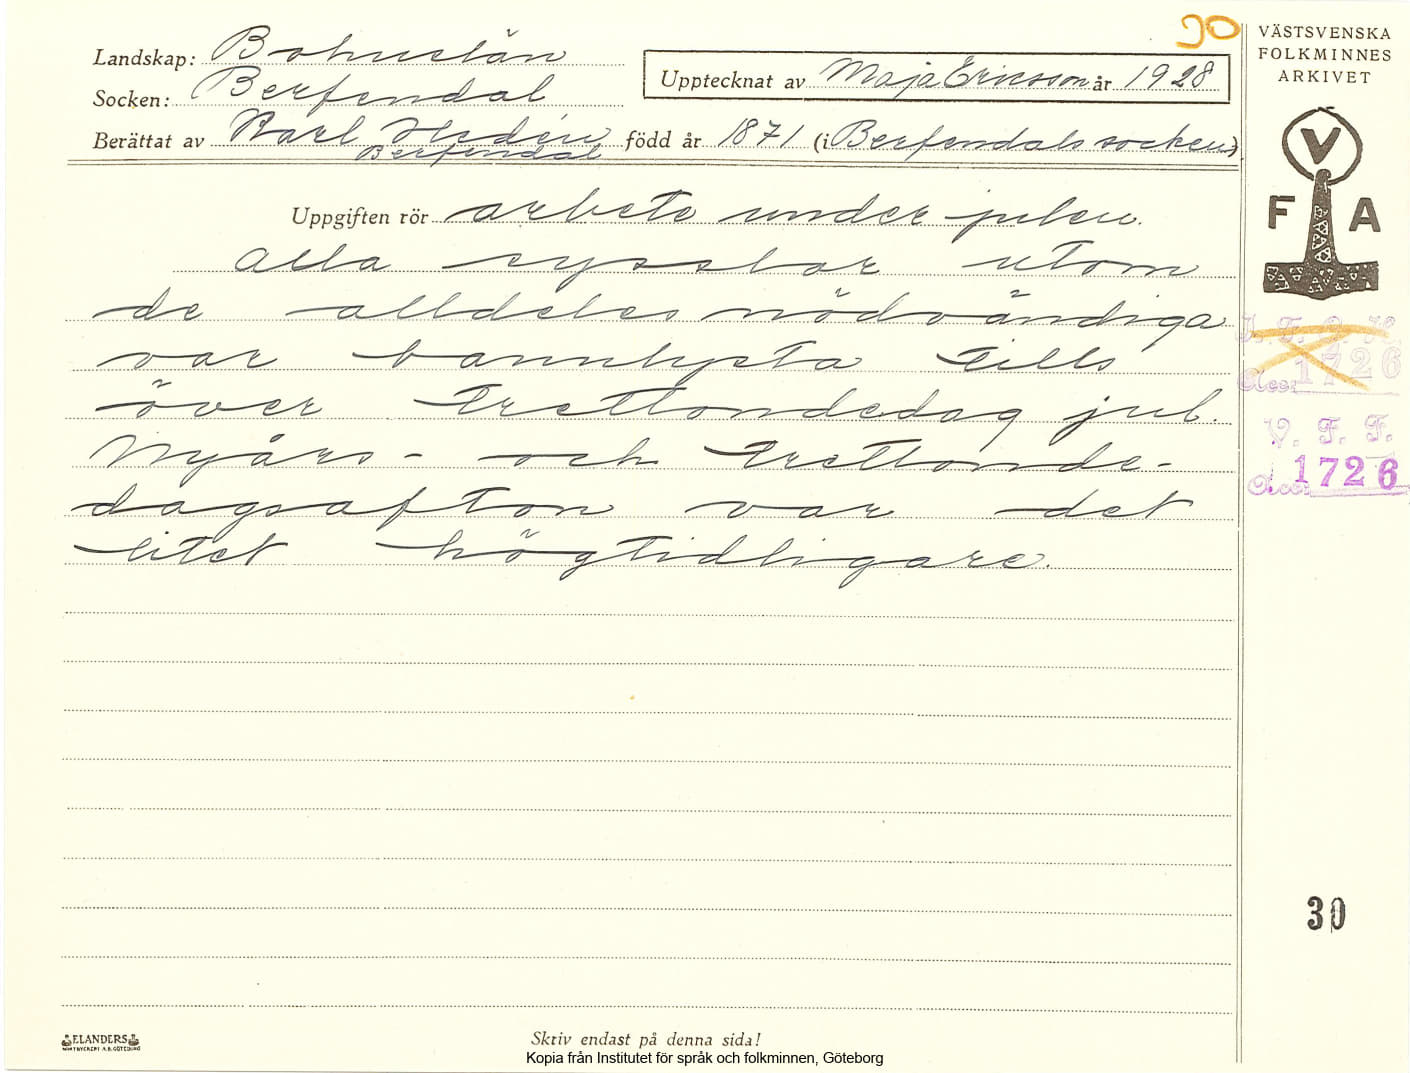 30
VÄSTSVENSKA
FOLKMINNES
ARKIVET
Landskap: Bohuslän
Upptecknat av Maja Ericsson år 1928
Socken: Berfendal
Berättat av Karl Hedén född år 1871 (i Berfendals socken)
Berfendal
V
F A
Uppgiften rör arbete under julen.
Alla sysslor utom
de alldeles nödvändiga
var bannlysta tills
över trettondedag jul.
Nyårs- och trettonde-
dagsafton var det
litet högtidligare.
Acc: 1726
V. F. F.
Acc: 1726
30
ELANDERS
Skriv endast på denna sida!
Kopia från Institutet för språk och folkminnen, Göteborg